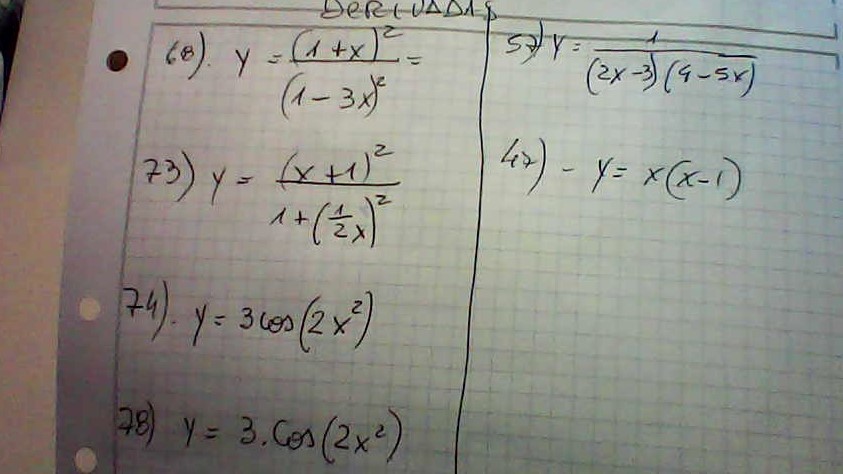 DERIVADAS
68). y = (1+x)² / (1-3x)² =
73) y = (x+1)² / 1+(1/2x)²
74). y = 3cos(2x²)
78) y = 3.cos(2x²)
57) y = 1 / (2x-3)(4-5x)
47) - y = x(x-1)